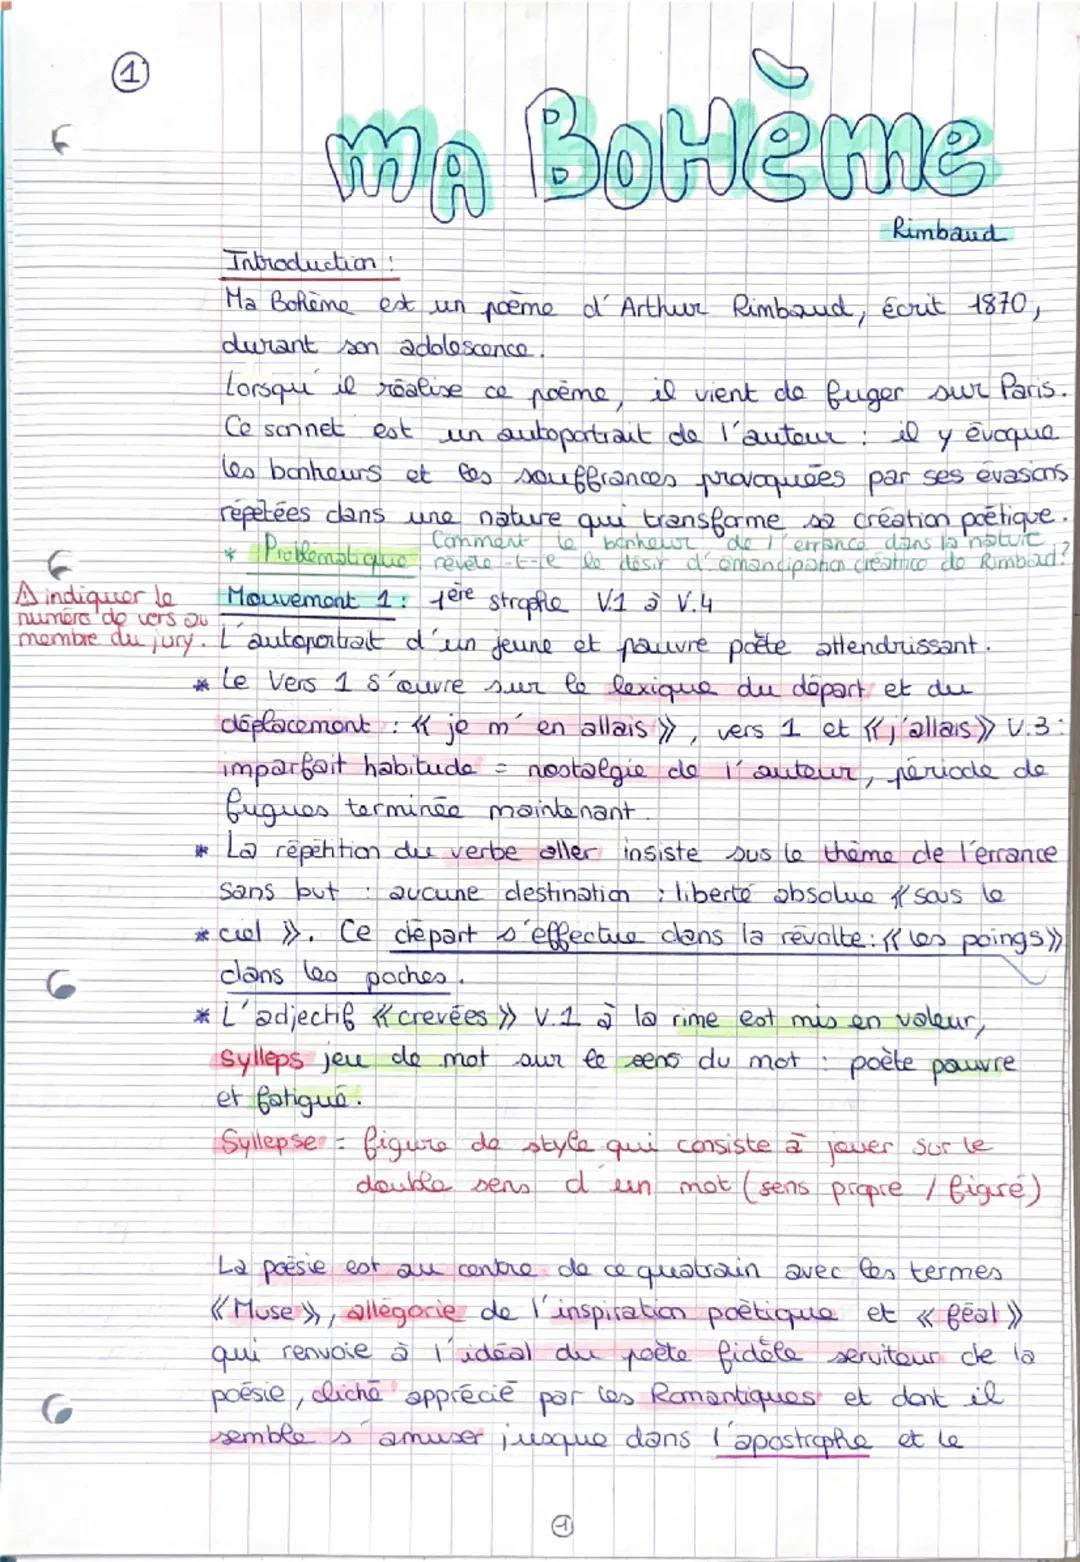 1
MA BOHème
Rimbaud
Introduction :
Ma Bohème est un poème d'Arthur Rimbaud, écrit 1870,
durant son adolescence.
Lorsqu'il réalise ce poème, il vient de fuger sur Paris.
Ce sonnet est un autoportrait de l'auteur : il y évoque
les bonheurs et les souffrances provoquées par ses évasions
répétées dans une nature qui transforme sa création poétique.
* Problématique Comment le bonheur de l'errance dans la nature
révèle-t-le le désir d'émancipation créatrice de Rimbaud?
⚠ indiquer le
numéro de vers au
membre du jury.
Mouvement 1 : 1ère strophe V.1 à V.4
L'autoportrait d'un jeune et pauvre poète attendrissant.
* Le Vers 1 s'œuvre sur le lexique du départ et du
déplacement : « je m'en allais », vers 1 et « j'allais » V.3 :
imparfait habitude = nostalgie de l'auteur, période de
fugues terminée maintenant.
* La répétition du verbe aller insiste sus le thème de l'errance
sans but : aucune destination : liberté absolue « sous le
* ciel ». Ce départ s'effectue dans la révolte : « les poings »
dans les poches.
* L'adjectif « crevées » V.1 à la rime est mis en valeur,
sylleps jeu de mot sur le sens du mot : poète pauvre
et fatigué.
Syllepse = figure de style qui consiste à jouer sur le
double sens d'un mot (sens propre / figuré)
La poésie est au centre de ce quatrain avec les termes
« Muse », allégorie de l'inspiration poétique et « féal »
qui renvoie à l'idéal du poète fidèle serviteur de la
poésie, cliché apprécié par les Romantiques et dont il
semble s'amuser jusque dans l'apostrophe et le
1